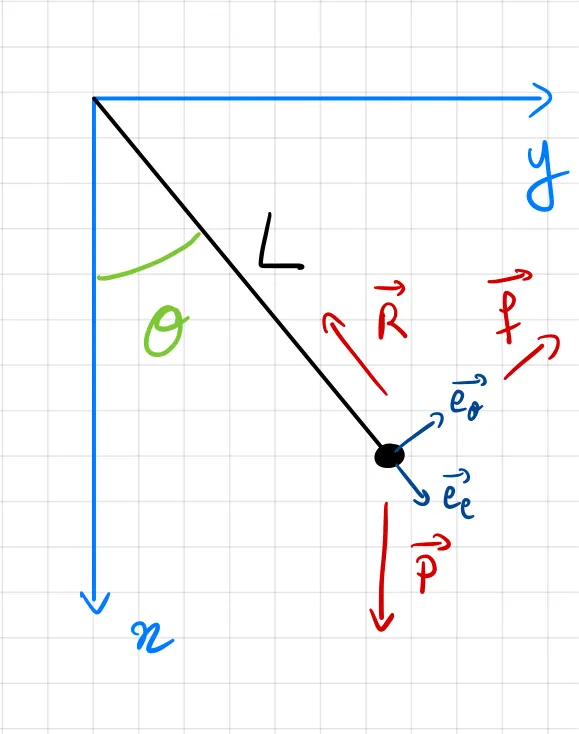 y
L
θ
R
f
e_θ
e_ρ
P
x